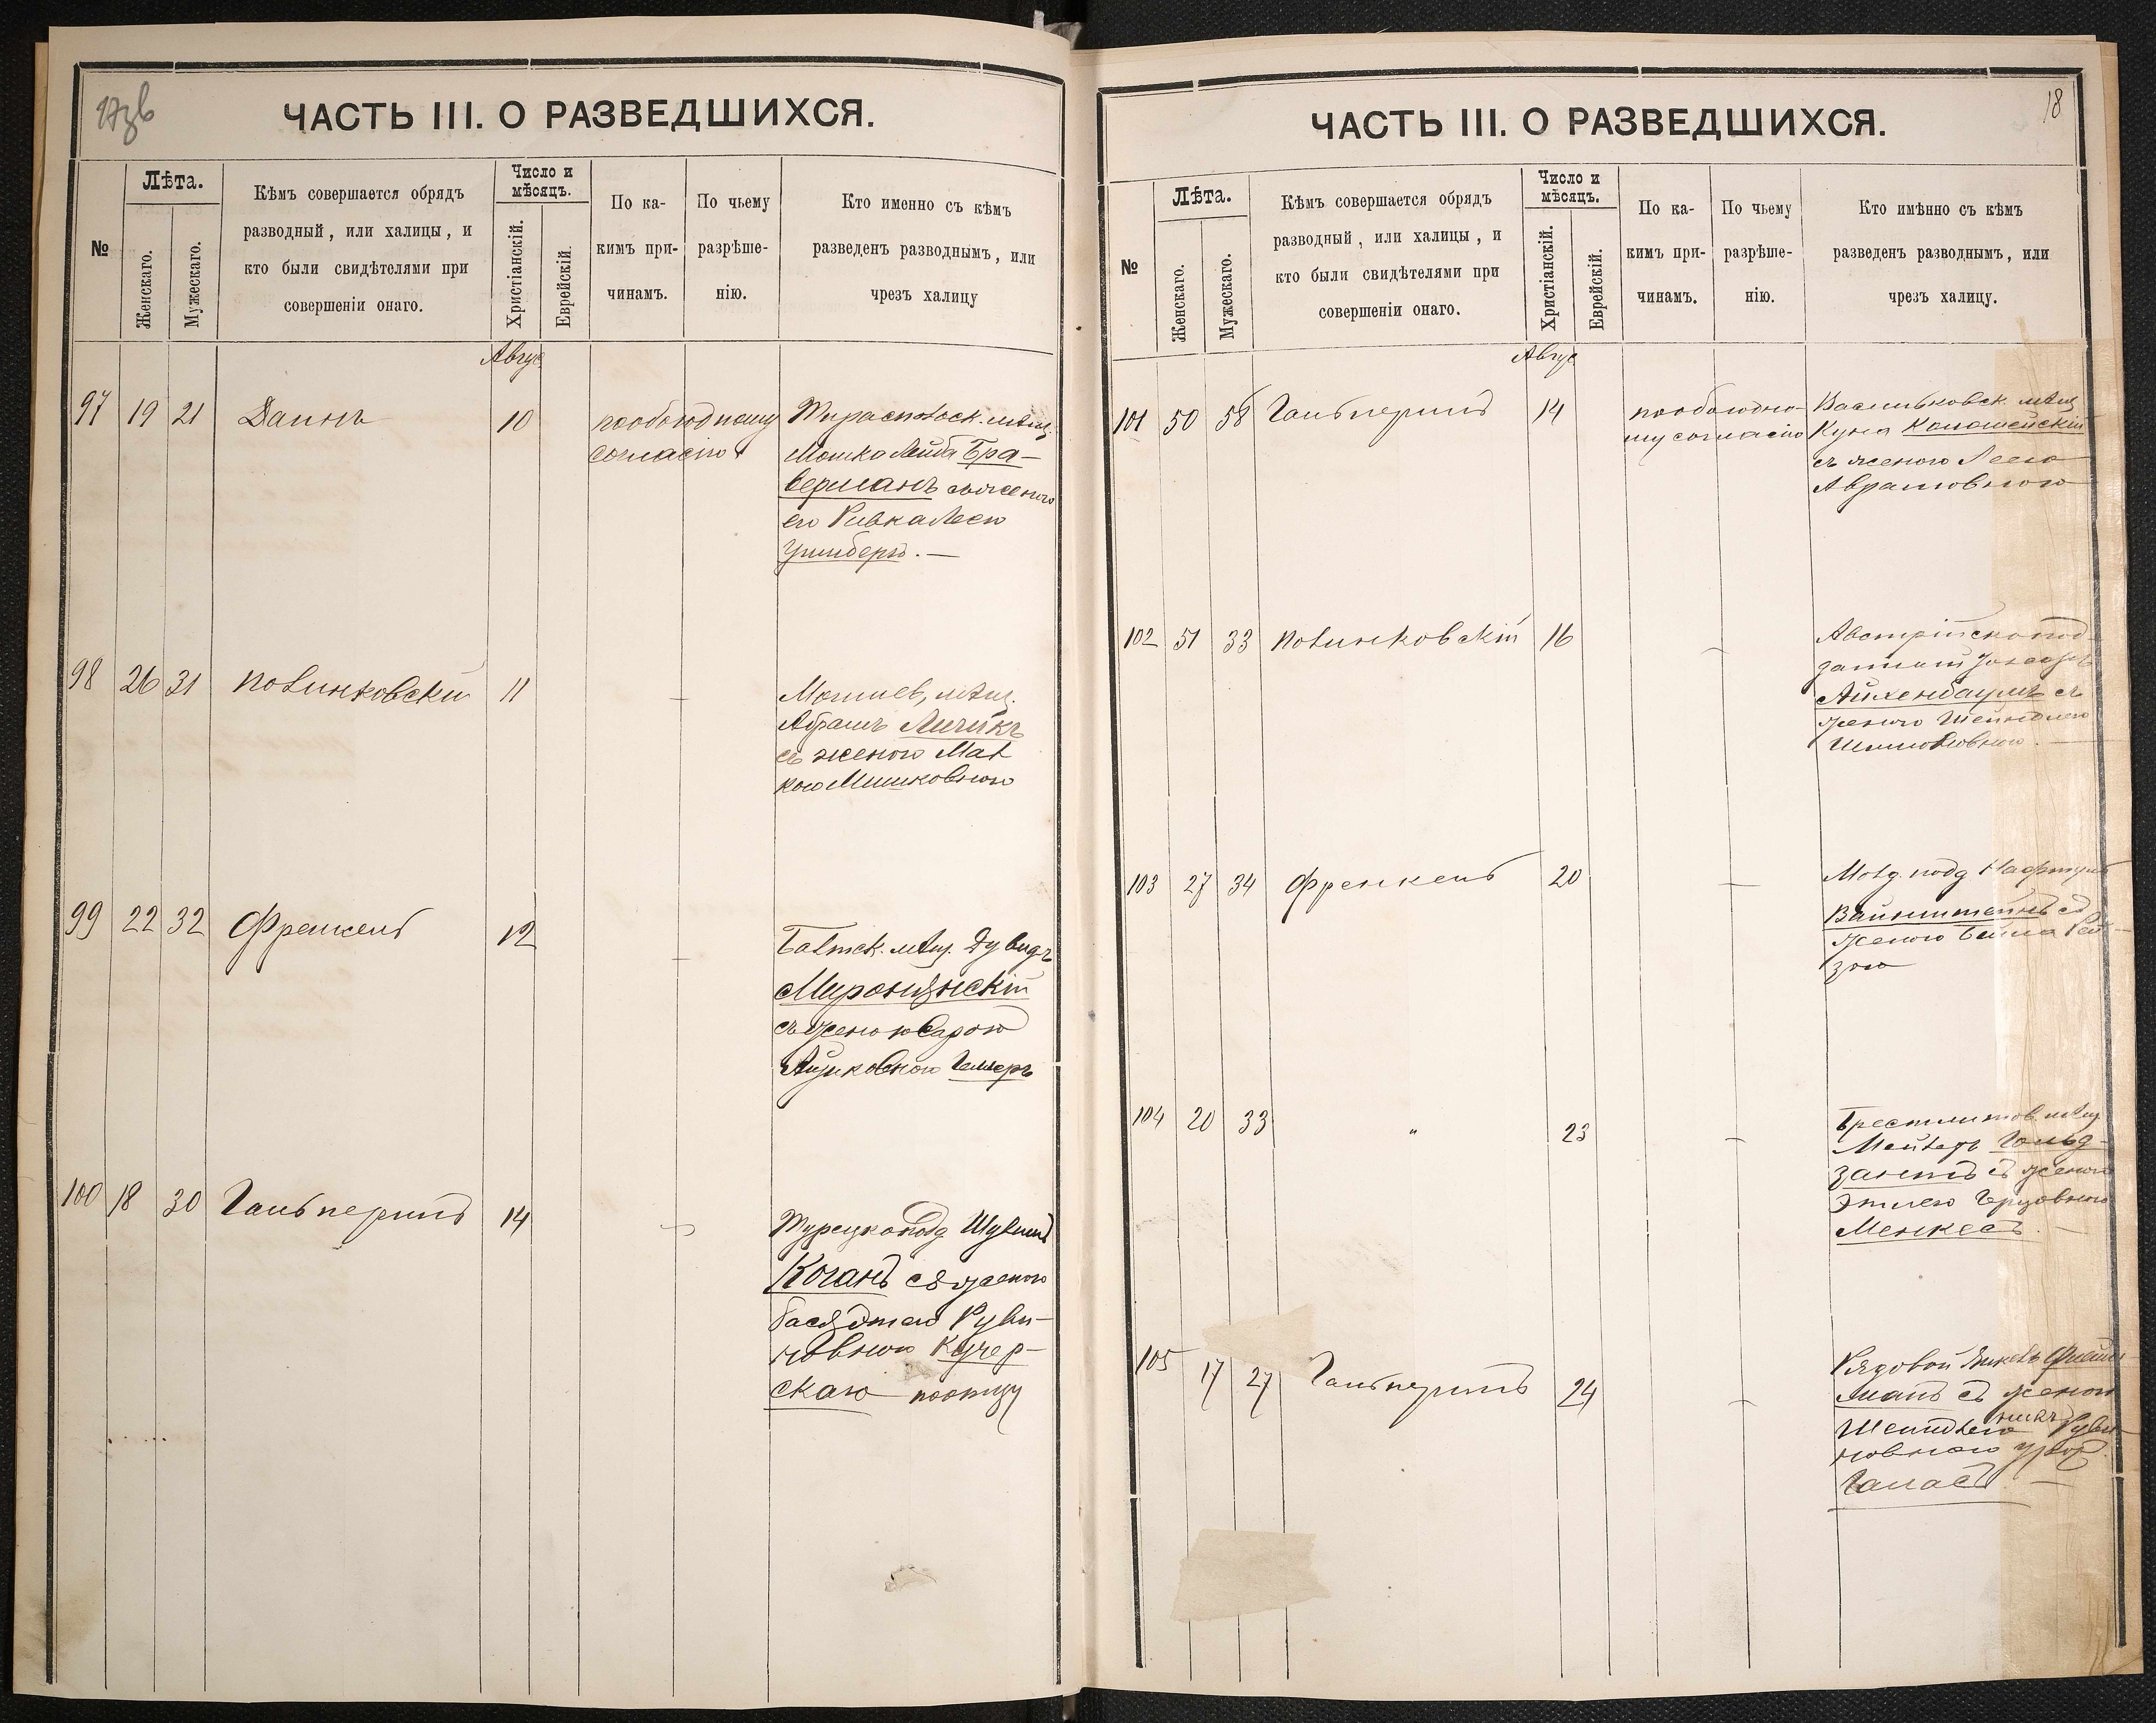 17зв
ЧАСТЬ III. О РАЗВЕДШИХСЯ.
№
Лѣта.
Женскаго.
Мужескаго.
Кѣмъ совершается обрядъ
разводный, или халицы, и
кто были свидѣтелями при
совершеніи онаго.
Число и
мѣсяцъ.
Христіанскій.
Еврейскій.
По ка-
кимъ при-
чинамъ.
По чьему
разрѣше-
нію.
Кто именно съ кѣмъ
разведенъ разводнымъ, или
чрезъ халицу
Авгус
97 19 21 Даинъ 10
пообоюдному
согласію
Тираспольск. мѣщ.
Мошко Лейба Бра-
верманъ съ женою
его Ривка Лею
98 26 31 Полинковскій 11
Абрамъ
съ женою Мал
кою Мошковною
99 22 32 Френкель 12
Балтск. мѣщ. Дувидъ
съ женою Сарою
Айзиковною
100 18 30 Гальперинъ 14
Турецкопод
Коганъ съ женою
Руви-
новною Кучер-
скаю
18
ЧАСТЬ III. О РАЗВЕДШИХСЯ.
№
Лѣта.
Женскаго.
Мужескаго.
Кѣмъ совершается обрядъ
разводный, или халицы, и
кто были свидѣтелями при
совершеніи онаго.
Число и
мѣсяцъ.
Христіанскій.
Еврейскій.
По ка-
кимъ при-
чинамъ.
По чьему
разрѣше-
нію.
Кто имѣнно съ кѣмъ
разведенъ разводнымъ, или
чрезъ халицу.
Авгус
101 50 58 Гальперинъ 14
пообоюдно-
му согласію
Васильковск. мѣщ
съ женою Леею
Аврамовною
102 51 33 Полинковскій 16
Австрійскопод-
данный Іосифъ
Айхенбаумъ съ
женою Шейндлею
103 27 34 Френкель 20
Молд. подд Нафтулъ
Вайнштейнъ съ
женою Бейла Рей-
зою
104 20 33 " 23
Брестлитов. мѣщ
Мейлехъ Гольд-
зантъ съ женою
Этлею Герцовною
Менкесъ.
105 17 27 Гальперинъ 24
Рядовой
манъ съ женою
Шейндлею Руви-
новною урож.
Галасъ